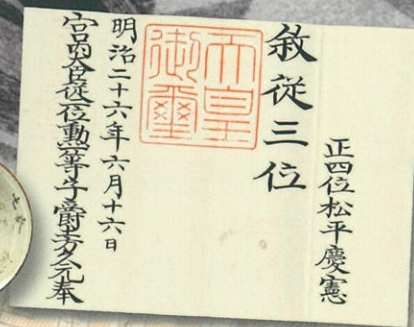 正四位松平慶憲
敘從三位
天皇
御璽
明治二十六年六月十六日
宮內大臣從二位勲一等子爵土方久元奉